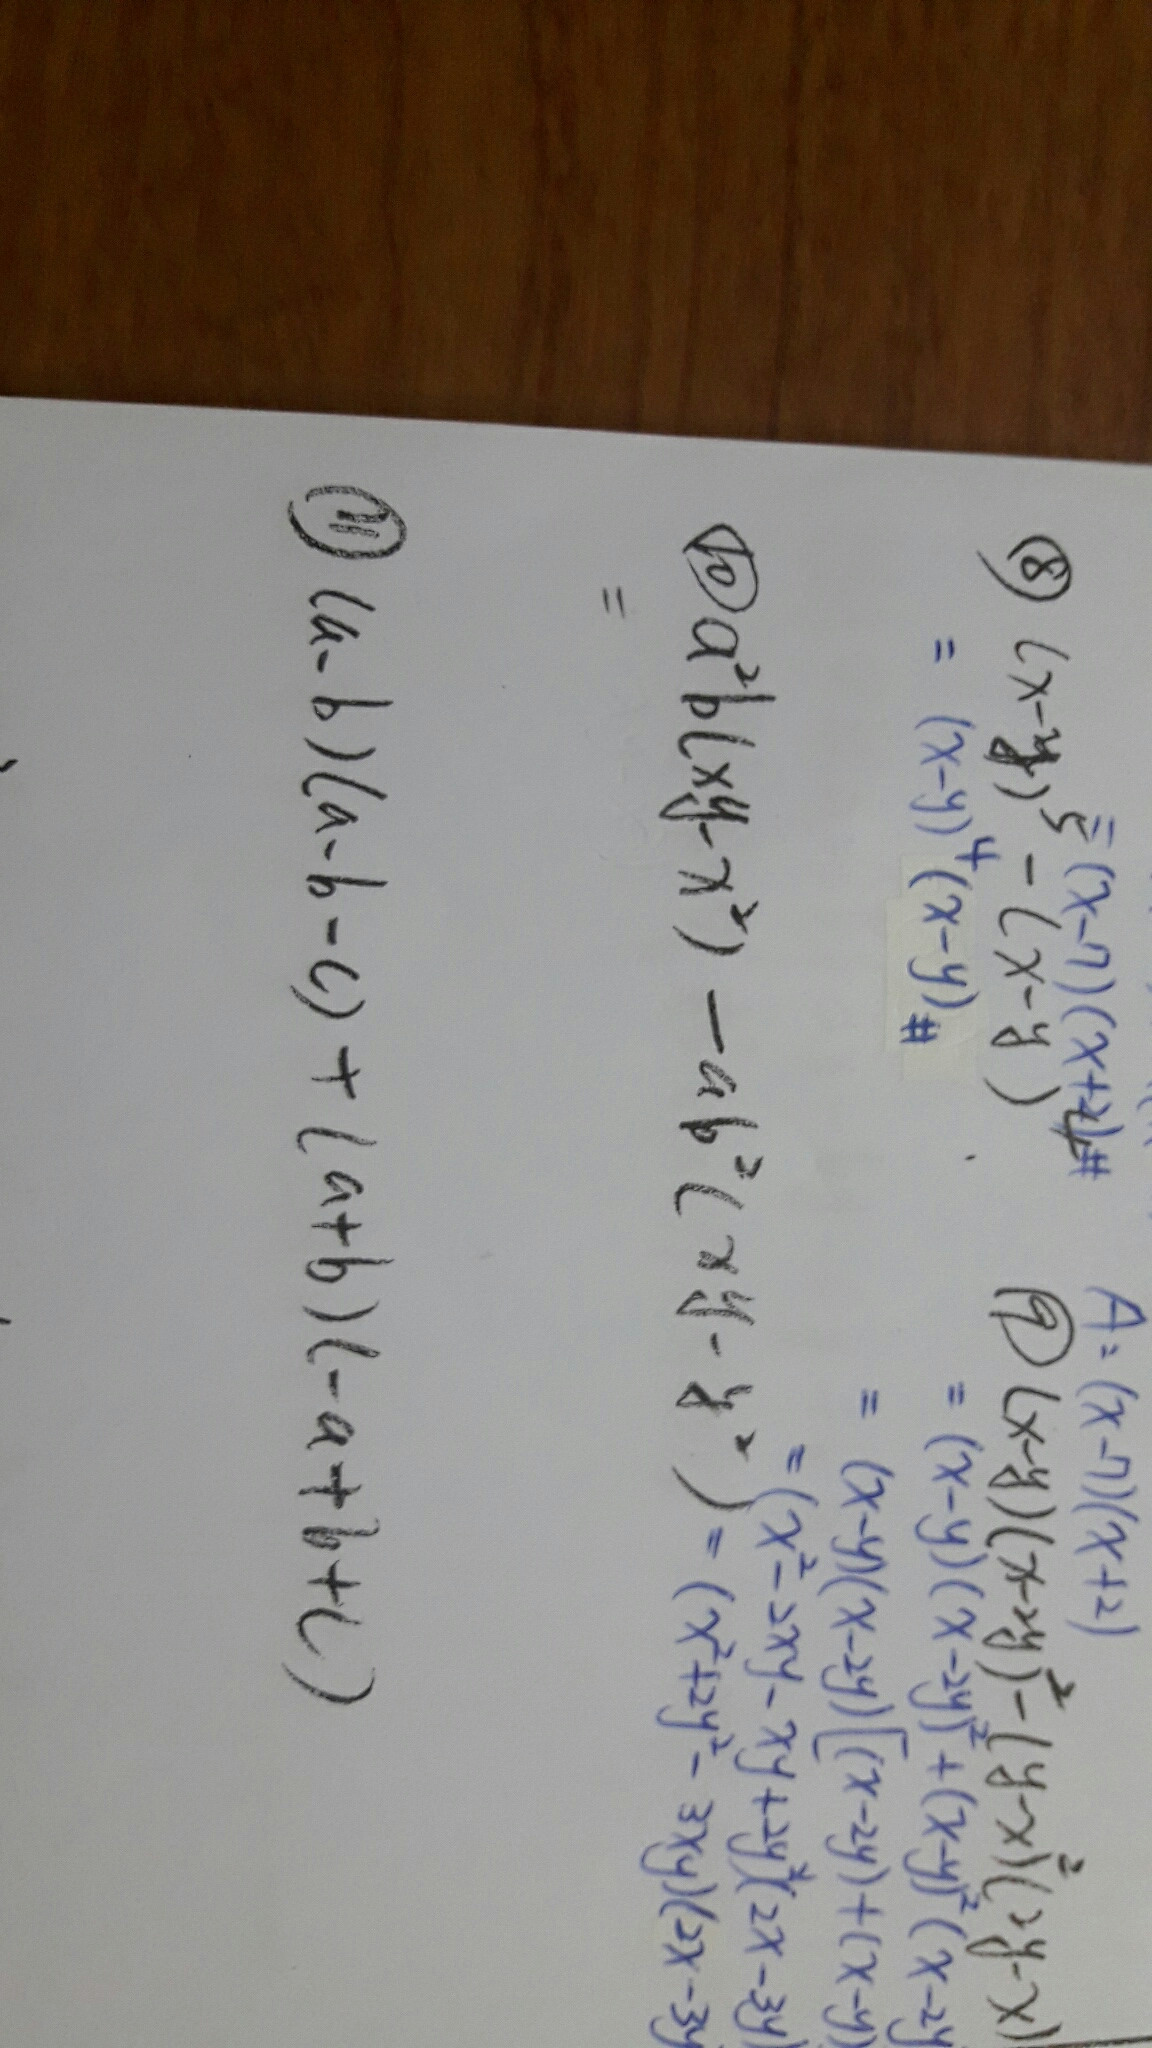 =(x-7)(x+2)#
A=(x-7)(x+2)
⑧ (x-y)⁵-(x-y)⁴
= (x-y)⁴(x-y)#
⑨ (x-y)(x-2y)²-(y-x)²(2y-x)
=(x-y)(x-2y)²+(x-y)²(x-2y
= (x-y)(x-2y)[(x-2y)+(x-y)
=(x²-2xy-xy+2y²)(2x-3y)
=(x²+2y²-3xy)(2x-3y
⑩ a²b(xy-x²)-ab²(xy-y²)
=
⑪ (a-b)(a-b-c)+(a+b)(-a+b+c)